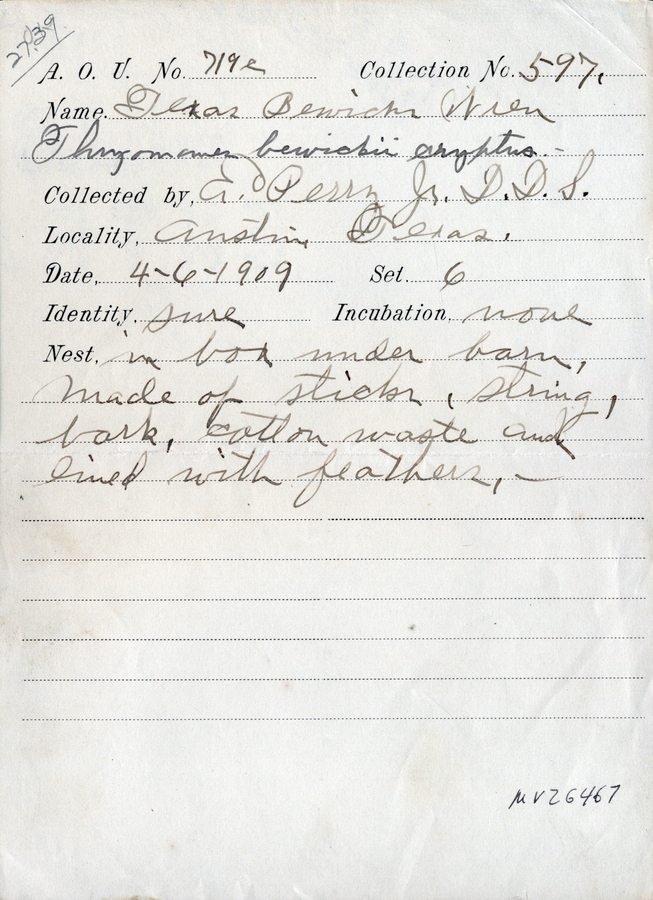 2739
A. O. U. No. 719e Collection No. 597.
Name. Texas Bewicks Wren
Thryomanes bewickii cryptus. -
Collected by, E. Perry Jr. D.D.S.
Locality, Austin, Texas.
Date, 4-6-1909 Set. 6
Identity. sure Incubation. none
Nest, in box under barn,
made of sticks, string,
bark, cotton waste and
lined with feathers, -
MV26467